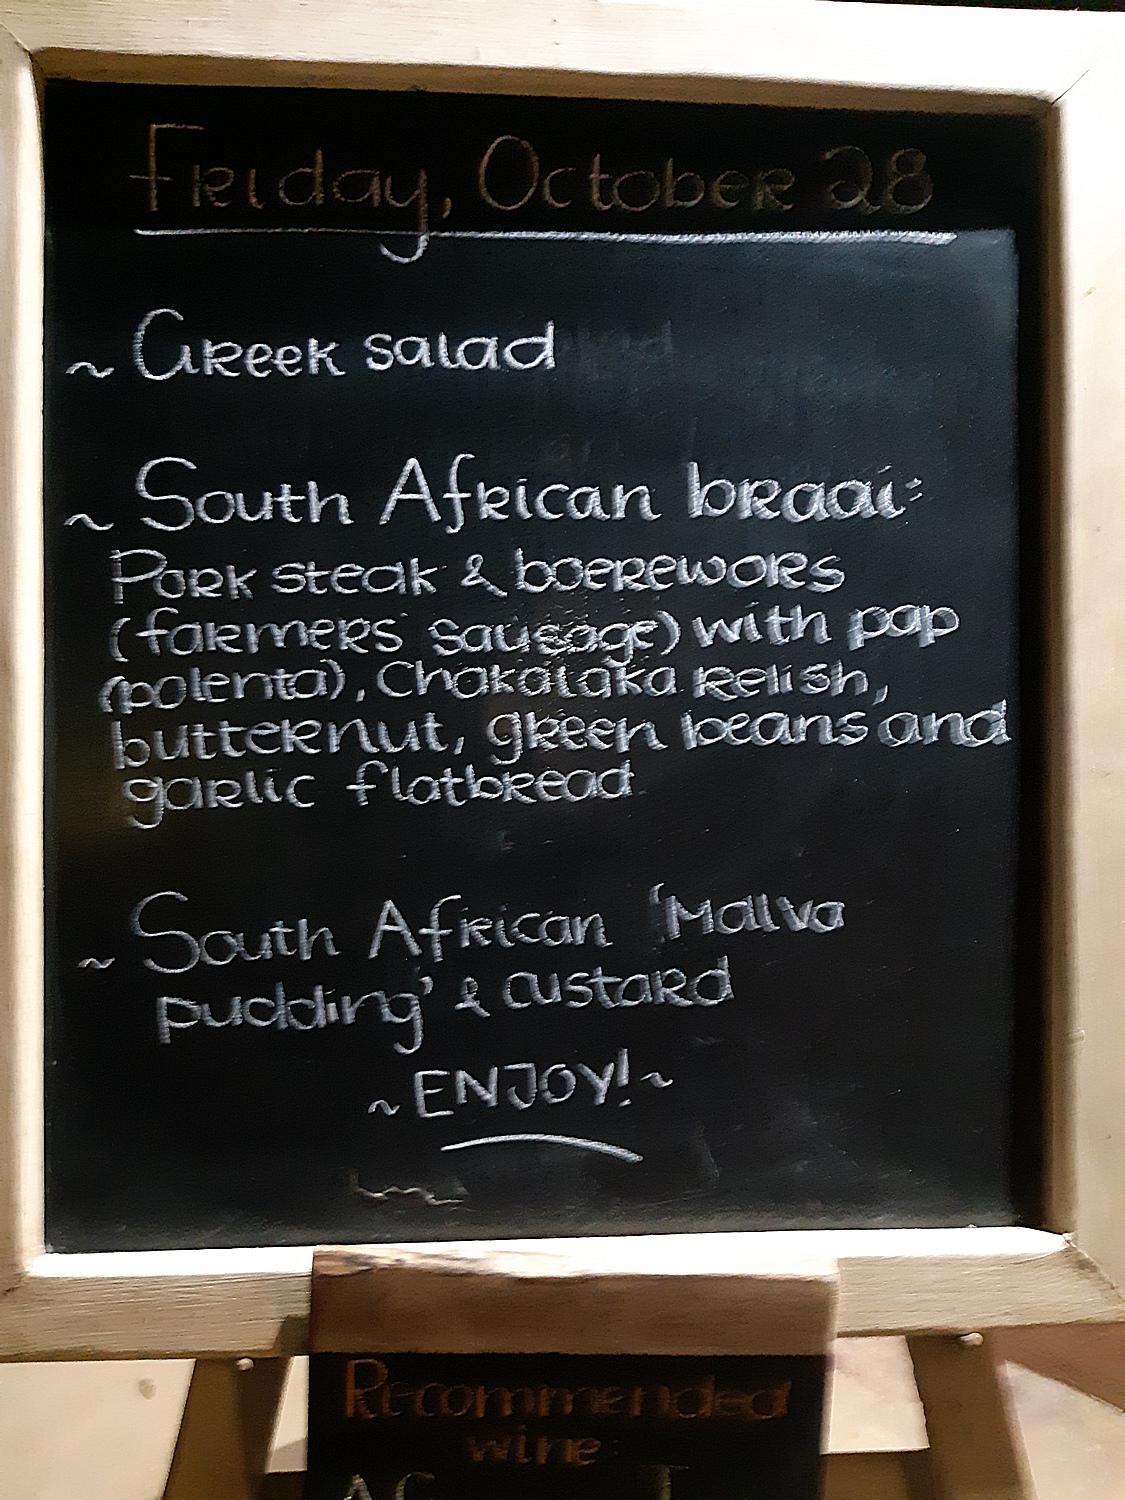 Friday, October 28
~ Greek salad
~ South African braai:
Pork steak & boerewors
(farmers sausage) with pap
(polenta), Chakalaka relish,
butternut, green beans and
garlic flatbread
~ South African 'Mallva
pudding' & custard
~ ENJOY! ~
Recommended
wine: